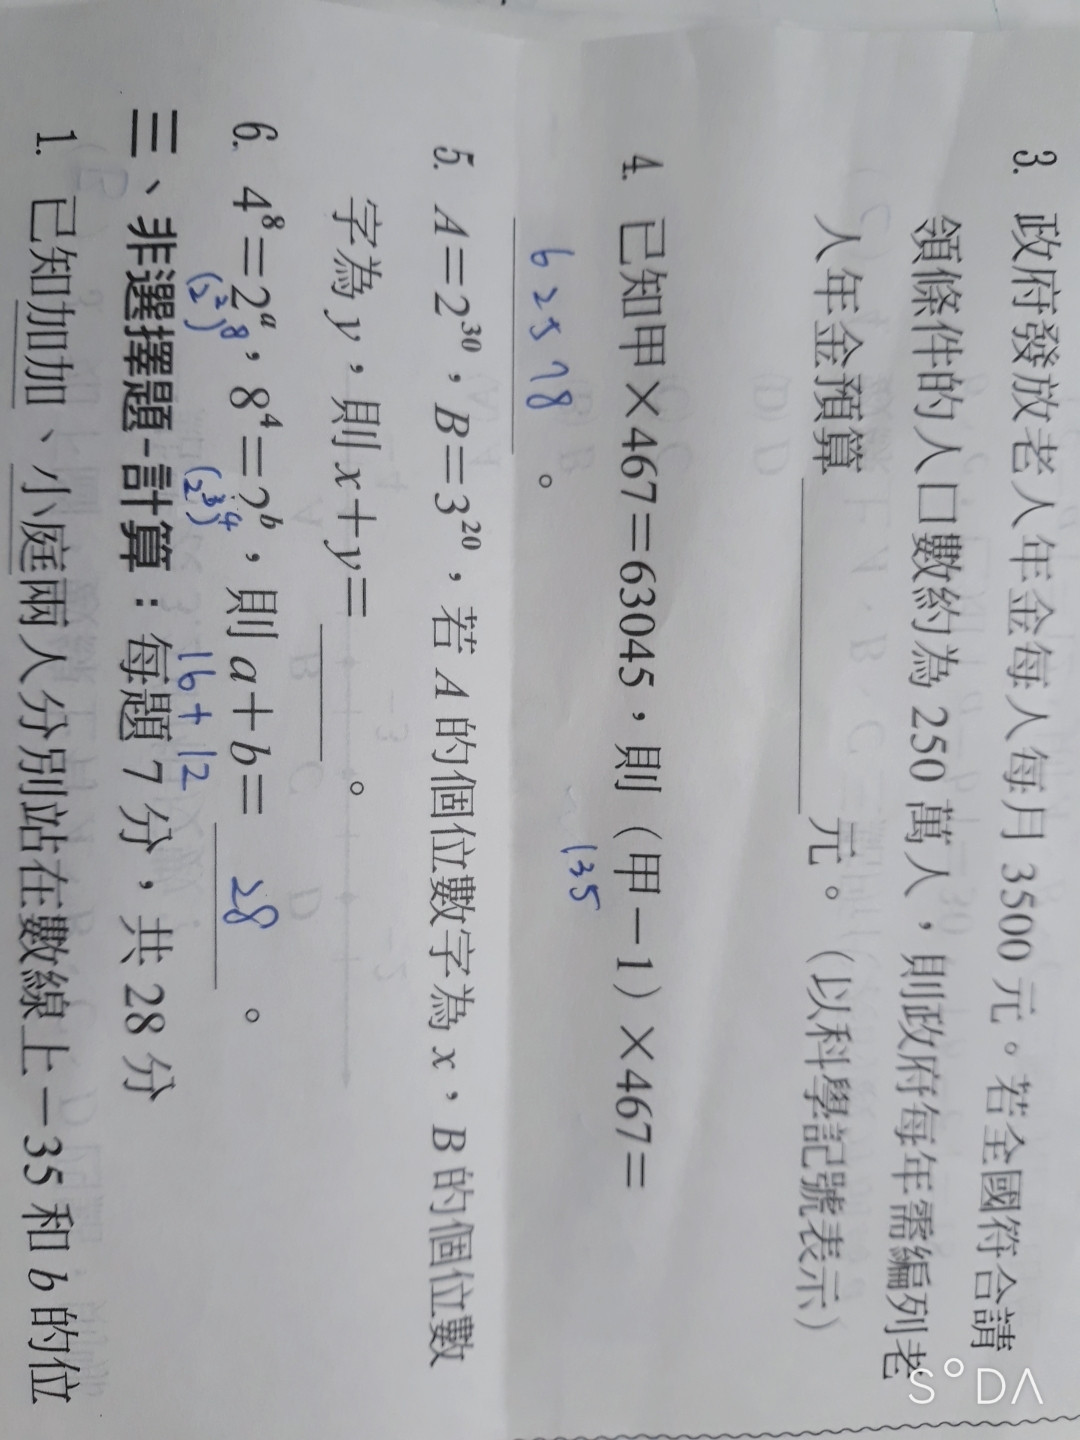 3. 政府發放老人年金每人每月 3500 元。若全國符合請
領條件的人口數約為 250 萬人，則政府每年需編列老
人年金預算________元。（以科學記號表示）
4. 已知甲×467＝63045，則（甲－1）×467＝
135
62578。
5. A＝2³⁰，B＝3²⁰，若 A 的個位數字為 x，B 的個位數
字為 y，則 x＋y＝________。
6. 4⁸＝2ᵃ，8⁴＝2ᵇ，則 a＋b＝ 28 。
(2²)⁸ (2³)⁴ 16+12
三、非選擇題-計算：每題 7 分，共 28 分
1. 已知加加、小庭兩人分別站在數線上－35 和 b 的位
S°DA